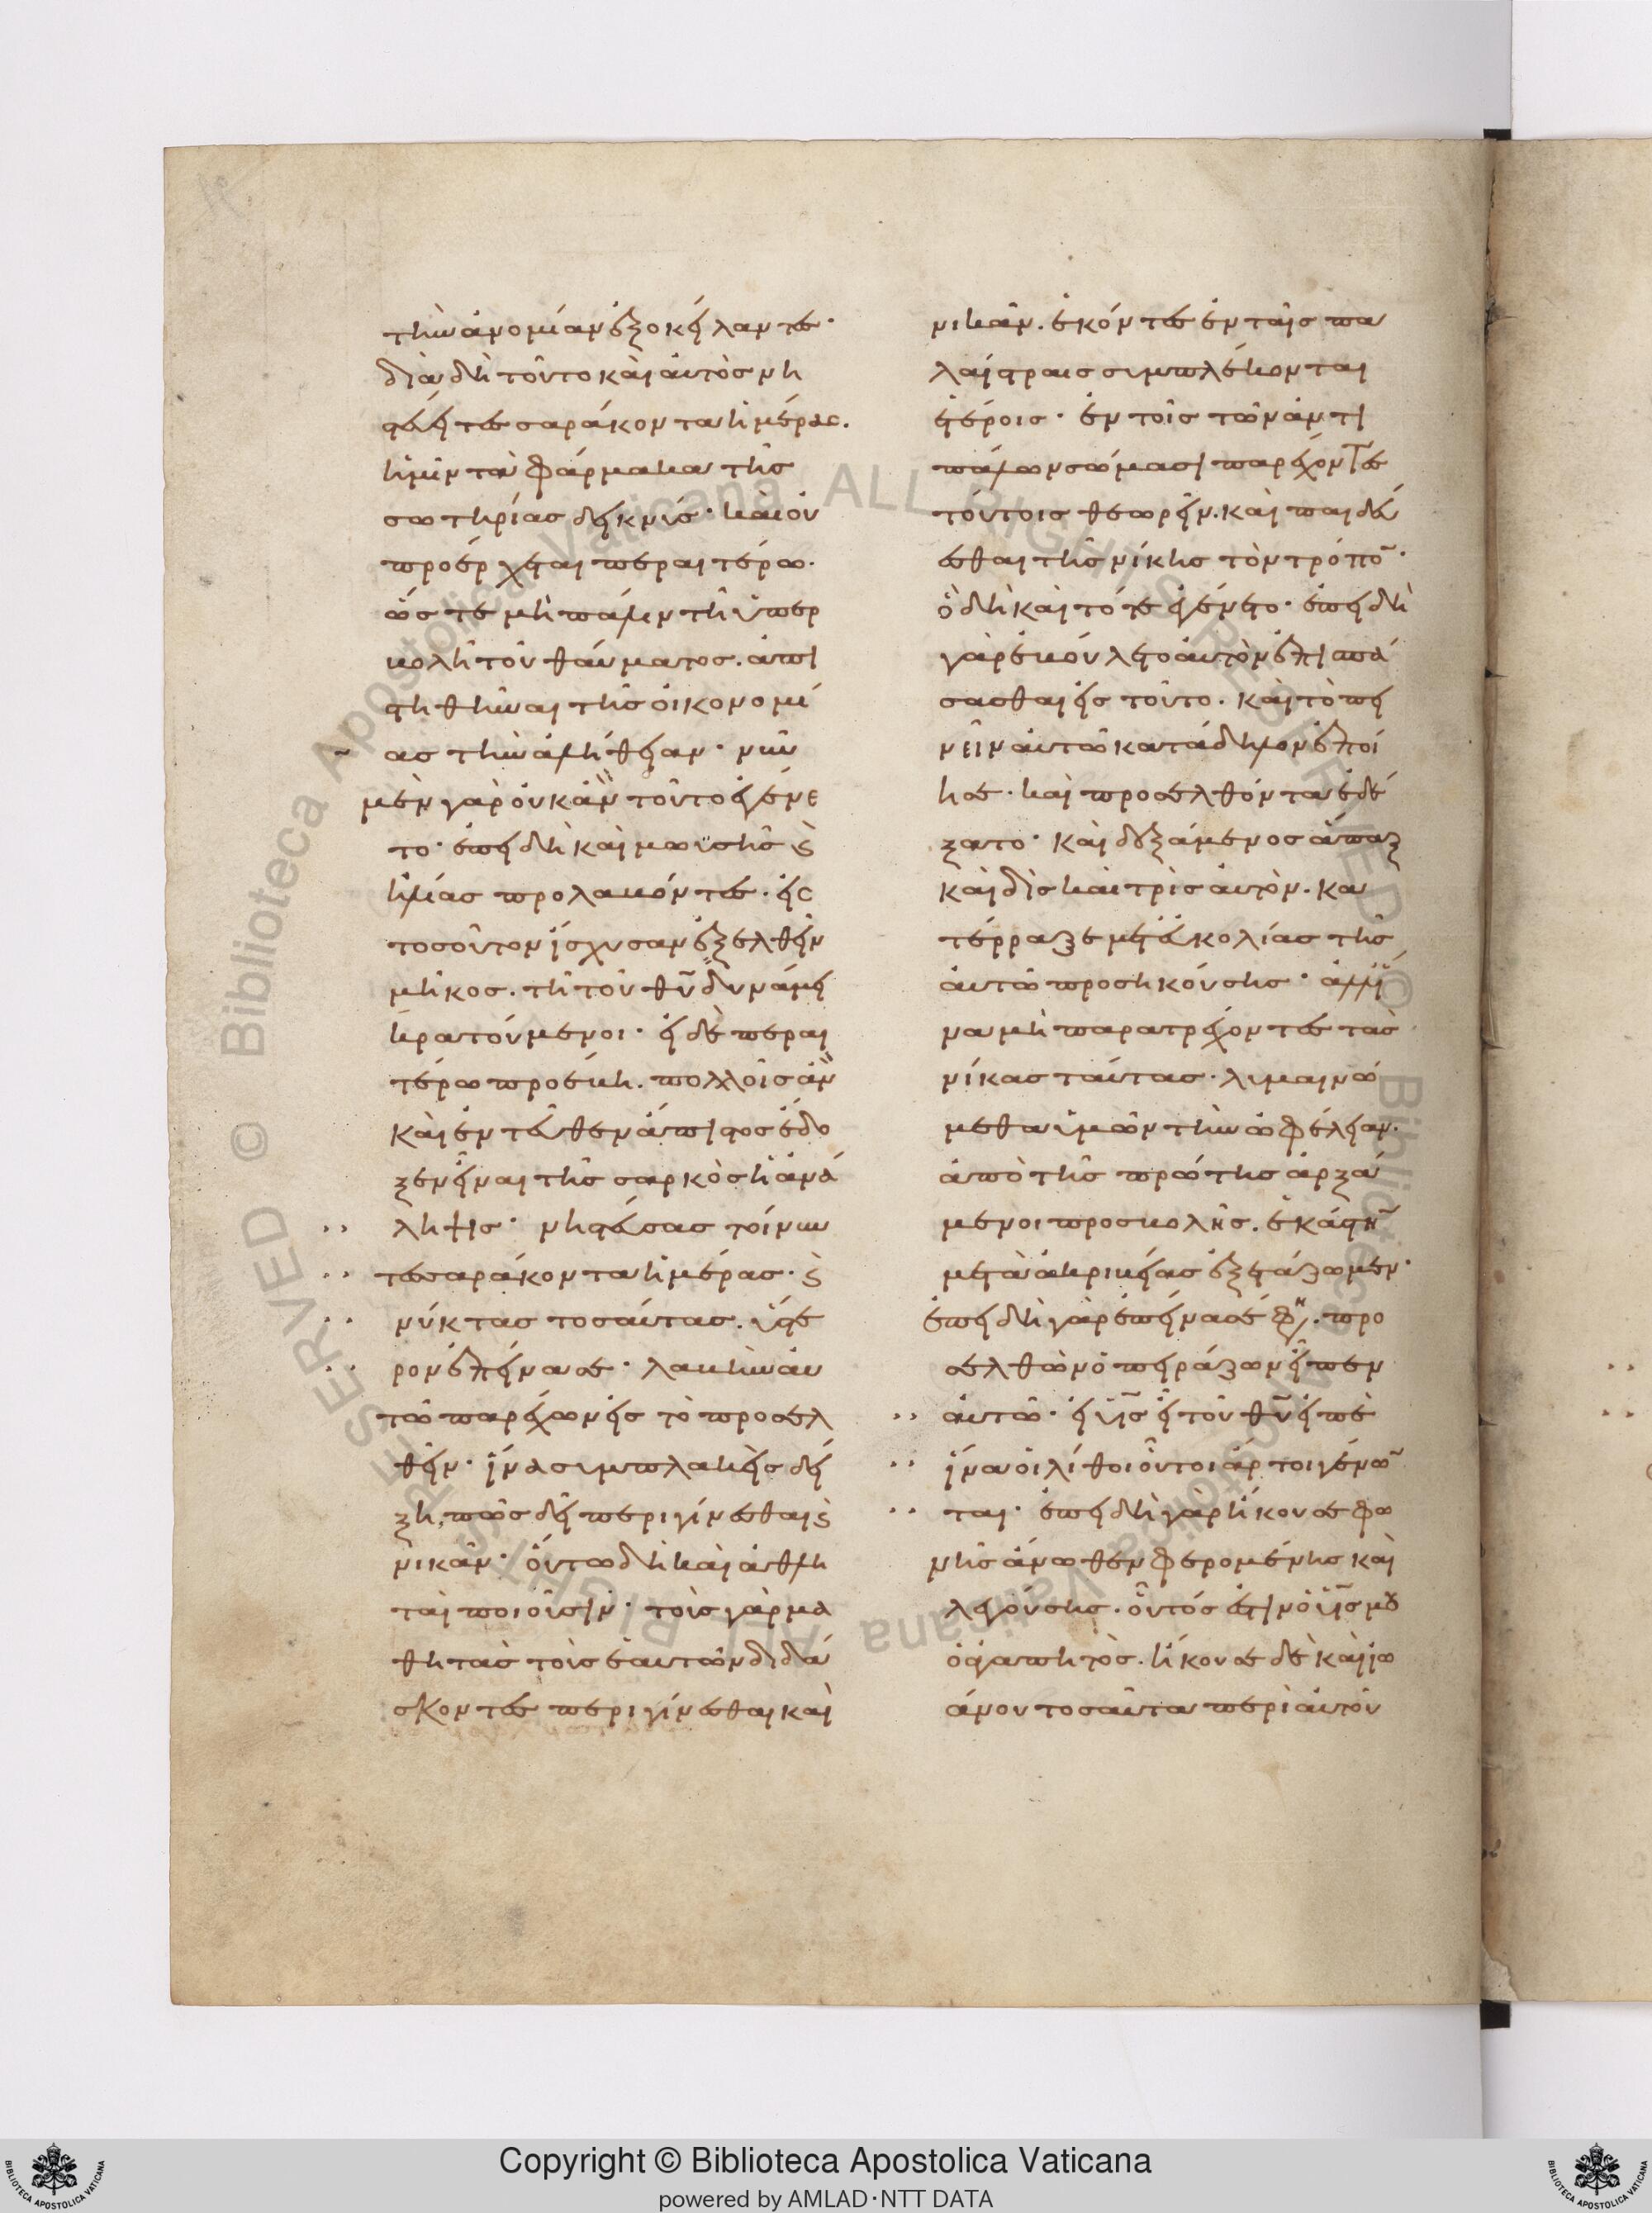 τὴν ἀνομίαν ἐξοκείλαντες·
διὰ δὴ τοῦτο καὶ αὐτὸς νη
στεύει τεσσαράκοντα ἡμέρας.
ἡμῖν τὰ φάρμακα τῆς
σωτηρίας δεικνύς· καὶ οὐ
προέρχεται περαιτέρω.
ὥστε μὴ πάλιν τῆ ὑπερ
βολῆ τοῦ θαύματος. ἀπι
στηθῆναι τῆς οἰκονομί
ας τὴν ἀλήθειαν· νῦν
μὲν γὰρ οὐκ ἂν τοῦτο ἐγένε
το· ἐπειδὴ καὶ μωϋσῆς ϗ
ἡλίας προλαβόντες. εἰς
τοσοῦτον ἴσχυσαν ἐξελθεῖν
μῆκος. τῆ τοῦ θῡ δυνάμει
κρατούμενοι· εἰ δὲ περαι
τέρω προέβη. πολλοῖς ἂν
καὶ ἐντεῦθεν ἄπιστος ἔδο
ξεν εἶναι τῆς σαρκὸς ἡ ἀνά
ληψις· νηστεύσας τοίνυν
τεσσαράκοντα ἡμέρας· ϗ
νύκτας τοσαύτας. ὕστε
ρον ἐπείνασε· λαβὴν αὐ
τῶ παρέχων εἰς τὸ προσελ
θεῖν· ἵνα συμπλακεὶς δεί
ξη, πῶς δεῖ περιγίνεσθαι ϗ
νικᾶν· οὕτω δὴ καὶ ἀθλη
ταὶ ποιοῦσιν· τοὺς γὰρ μα
θητὰς τοὺς ἑαυτῶν διδά
σκοντες περιγίνεσθαι καὶ
νικᾶν. ἑκόντες ἐν ταῖς πα
λαίστραις συμπλέκονται
ἑτέροις· ἐν τοῖς τῶν ἀντι
πάλων σώμασι παρέχοντες
τούτοις θεωρεῖν. καὶ παιδεύ
εσθαι τῆς νίκης τὸν τρόπο̄·
ὃ δὴ καὶ τότε ἐγένετο· ἐπειδὴ
γὰρ ἐβούλετο αὐτὸν ἐπισπά
σασθαι εἰς τοῦτο. καὶ τὸ πει
νεῖν αὐτῶ κατάδηλον ἐποί
ησε. καὶ προσελθόντα ἐδέ
ξατο· καὶ δεξάμενος ἅπαξ
καὶ δὶς καὶ τρὶς αὐτὸν. κα
τέρραξε μετ' εὐκολίας τῆς
αὐτῶ προσηκούσης· ἀλλ' ἵ
να μὴ παρατρέχοντες τὰς
νίκας ταύτας. λυμαινώ
μεθα ὑμῶν τὴν ὠφέλειαν.
ἀπὸ τῆς πρώτης ἀρξά
μενοι προσβολῆς. ἑκάστη̄
μετὰ ἀκριβείας ἐξετάζωμεν·
ἐπειδὴ γὰρ ἐπείνασέ φη. προ
σελθὼν ὁ πειράζων εἶπεν
αὐτῶ· εἰ ῡς̄ εἶ τοῦ θῡ εἰπὲ
ἵνα οἱ λίθοι οὗτοι ἄρτοι γένω̄
ται· ἐπειδὴ γὰρ ἤκουσε φω
νῆς ἄνωθεν φερομένης καὶ
λεγούσης. οὗτός ἐστιν ὁ ῡς̄ μου
ὁ ἀγαπητὸς. ἤκουσε δὲ καὶ ἰω
άννου τοσαῦτα περὶ αὐτοῦ